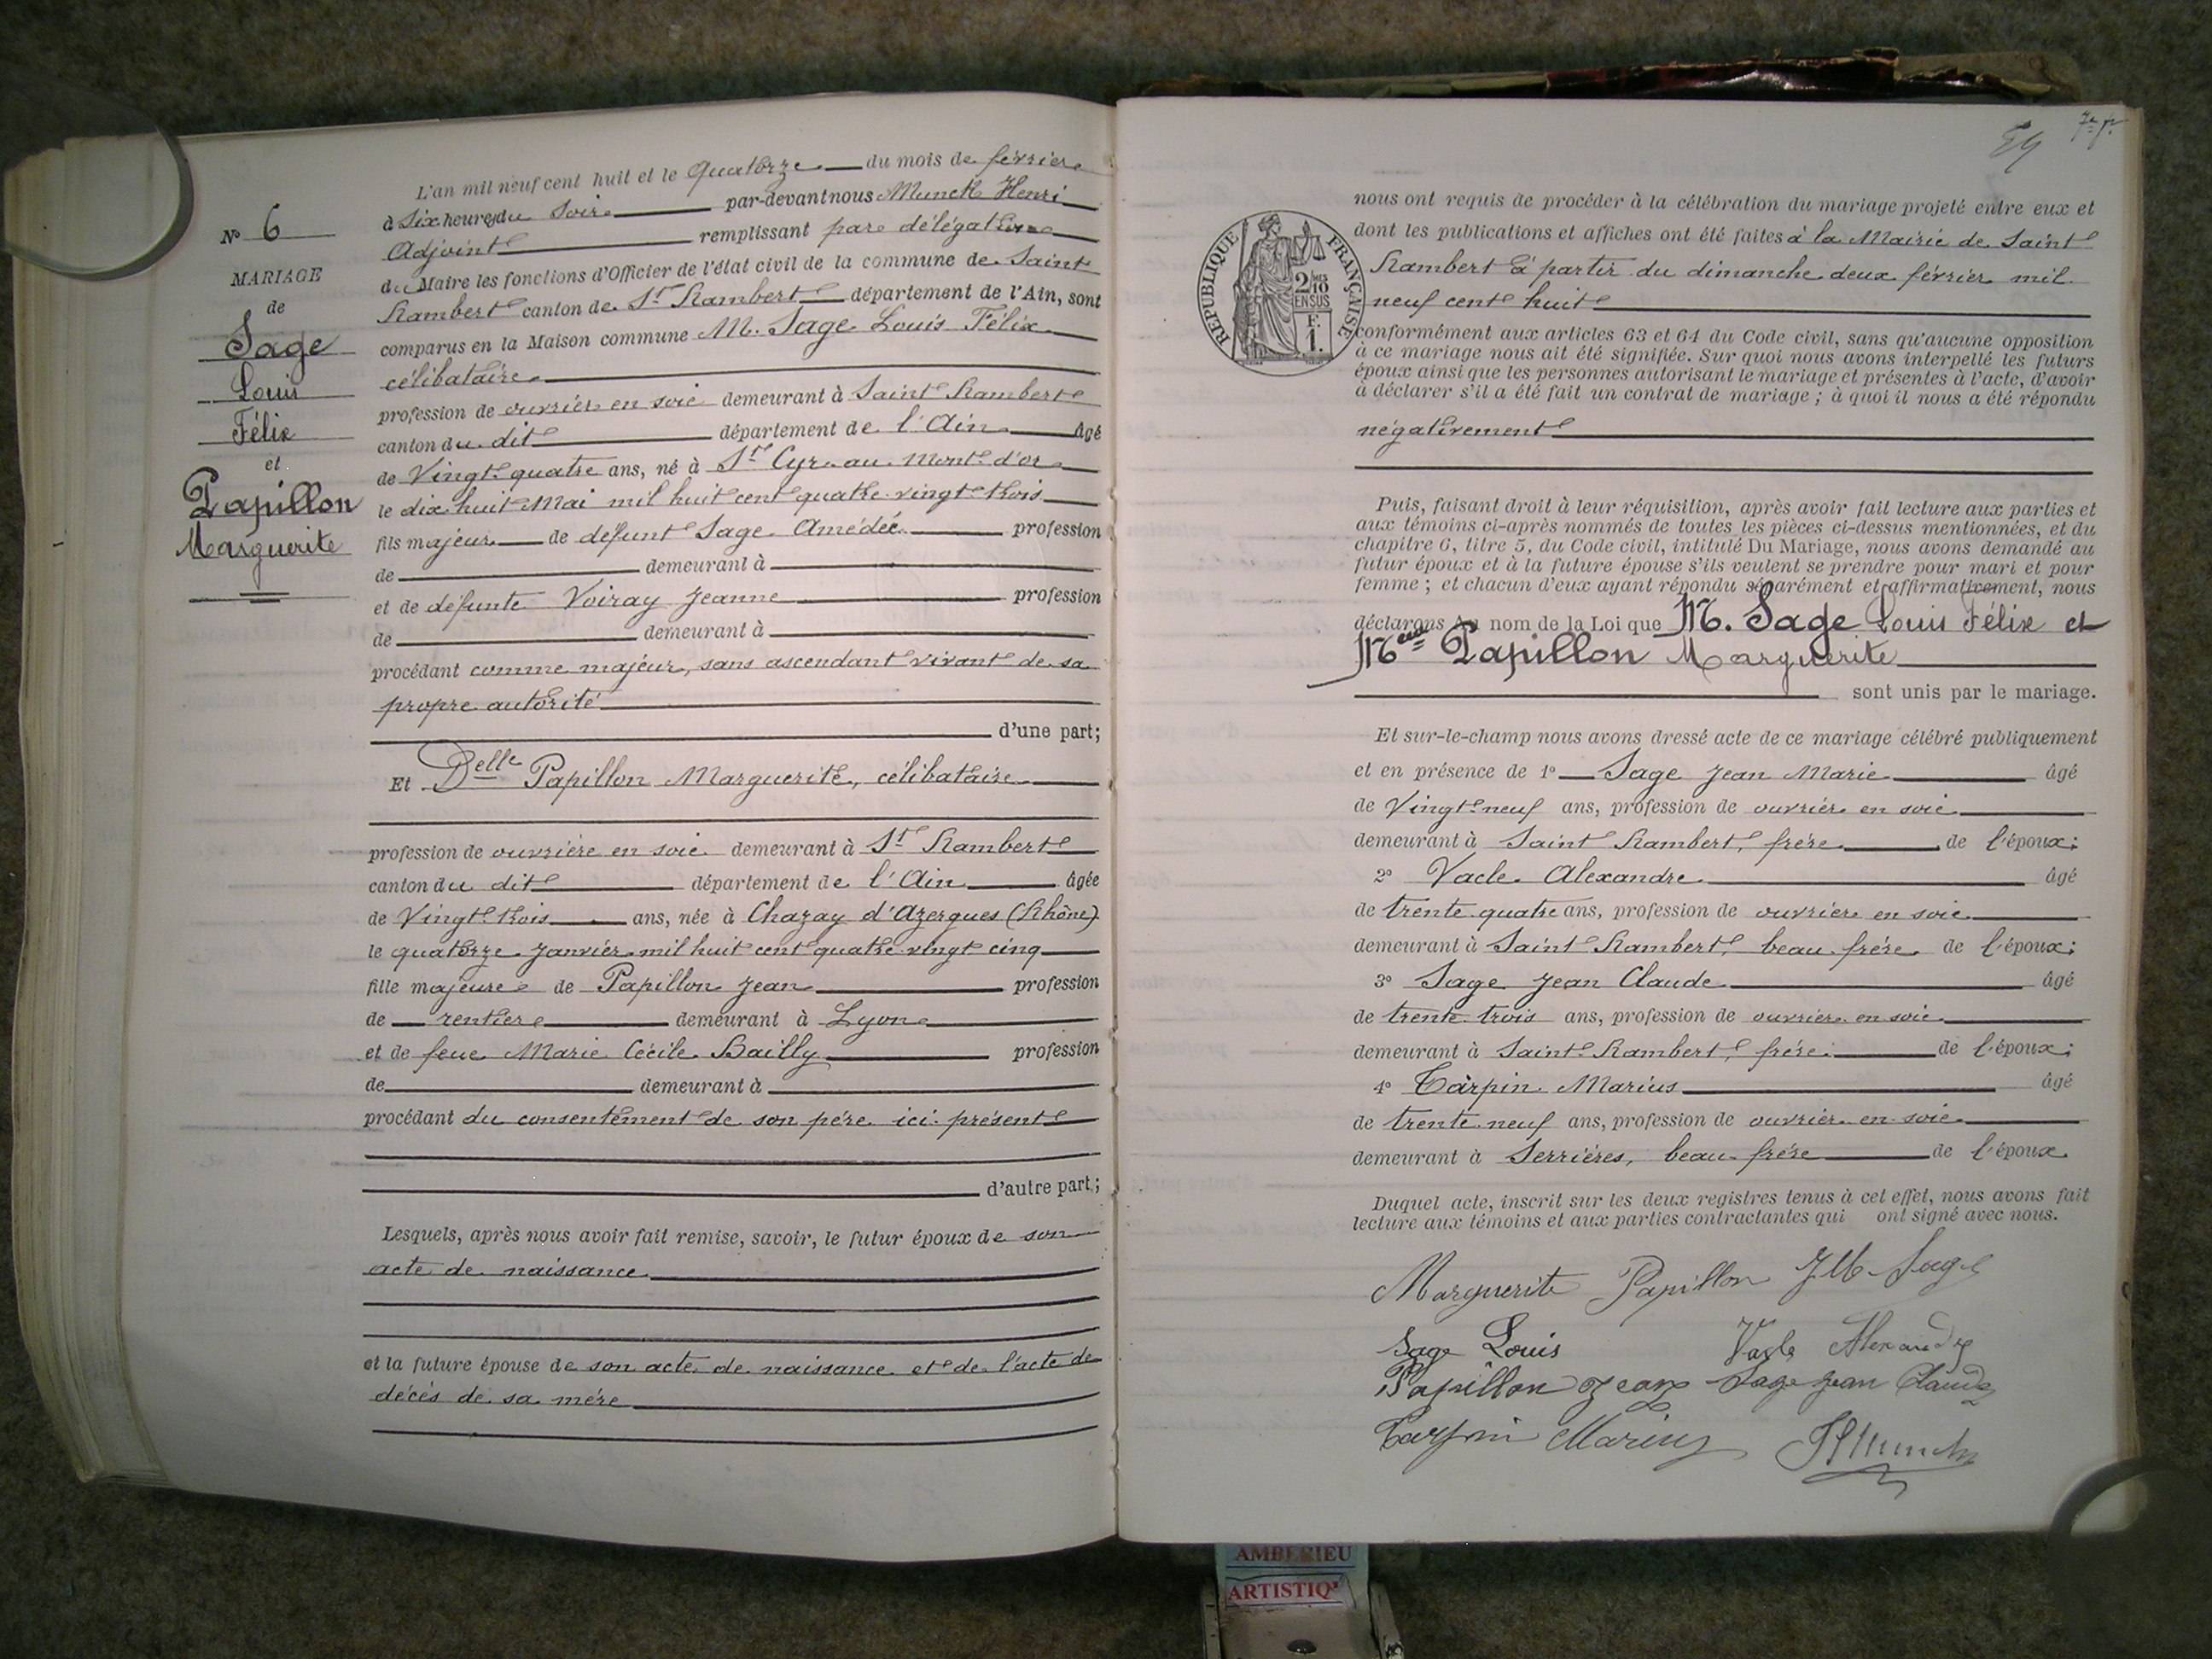 L'an mil neuf cent huit et le Quatorze du mois de février
à Six heures du Soir par-devant nous Munch Henri
Adjoint remplissant par délégation
du Maire les fonctions d'Officier de l'état civil de la commune de Saint
Rambert canton de St Rambert département de l'Ain, sont
comparus en la Maison commune M. Sage Louis Félix
célibataire
profession de ouvrier en soie demeurant à Saint Rambert
canton du dit département de l'Ain âgé
de Vingt quatre ans, né à St Cyr au Mont d'or
le dix huit Mai mil huit cent quatre vingt trois
fils majeur de défunt Sage Amédée profession
de demeurant à
et de défunte Voiray Jeanne profession
de demeurant à
procédant comme majeur, sans ascendant vivant de sa
propre autorité
d'une part;
Et Delle Papillon Marguerite, célibataire
profession de ouvrière en soie demeurant à St Rambert
canton du dit département de l'Ain âgée
de Vingt trois ans, née à Chazay d'Azergues (Rhône)
le quatorze Janvier mil huit cent quatre vingt cinq
fille majeure de Papillon Jean profession
de rentier demeurant à Lyon
et de feue Marie Cécile Bailly profession
de demeurant à
procédant du consentement de son père ici présent
d'autre part;
Lesquels, après nous avoir fait remise, savoir, le futur époux de son
acte de naissance
et la future épouse de son acte de naissance et de l'acte de
décès de sa mère
N° 6
MARIAGE
de
Sage
Louis
Félix
et
Papillon
Marguerite
59
nous ont requis de procéder à la célébration du mariage projeté entre eux et
dont les publications et affiches ont été faites à la Mairie de Saint
Rambert à partir du dimanche deux février mil
neuf cent huit
conformément aux articles 63 et 64 du Code civil, sans qu'aucune opposition
à ce mariage nous ait été signifiée. Sur quoi nous avons interpellé les futurs
époux ainsi que les personnes autorisant le mariage et présentes à l'acte, d'avoir
à déclarer s'il a été fait un contrat de mariage ; à quoi il nous a été répondu
négativement
Puis, faisant droit à leur réquisition, après avoir fait lecture aux parties et
aux témoins ci-après nommés de toutes les pièces ci-dessus mentionnées, et du
chapitre 6, titre 5, du Code civil, intitulé Du Mariage, nous avons demandé au
futur époux et à la future épouse s'ils veulent se prendre pour mari et pour
femme ; et chacun d'eux ayant répondu séparément et affirmativement, nous
déclarons au nom de la Loi que M. Sage Louis Félix et
Melle Papillon Marguerite
sont unis par le mariage.
Et sur-le-champ nous avons dressé acte de ce mariage célébré publiquement
et en présence de 1° Sage Jean Marie âgé
de Vingt neuf ans, profession de ouvrier en soie
demeurant à Saint Rambert, frère de l'époux;
2° Vacle Alexandre âgé
de trente quatre ans, profession de ouvrier en soie
demeurant à Saint Rambert, beau frère de l'époux;
3° Sage Jean Claude âgé
de trente trois ans, profession de ouvrier en soie
demeurant à Saint Rambert, frère de l'époux;
4° Tarpin Marius âgé
de trente neuf ans, profession de ouvrier en soie
demeurant à Serrières, beau frère de l'époux
Duquel acte, inscrit sur les deux registres tenus à cet effet, nous avons fait
lecture aux témoins et aux parties contractantes qui ont signé avec nous.
Marguerite Papillon JM Sage
Sage Louis Vacle Alexandre
Papillon Jean Sage Jean Claude
Tarpin Marius HMunch
REPUBLIQUE FRANÇAISE
2/10 EN SUS
F. 1.
AMBERIEU
ARTISTIQ